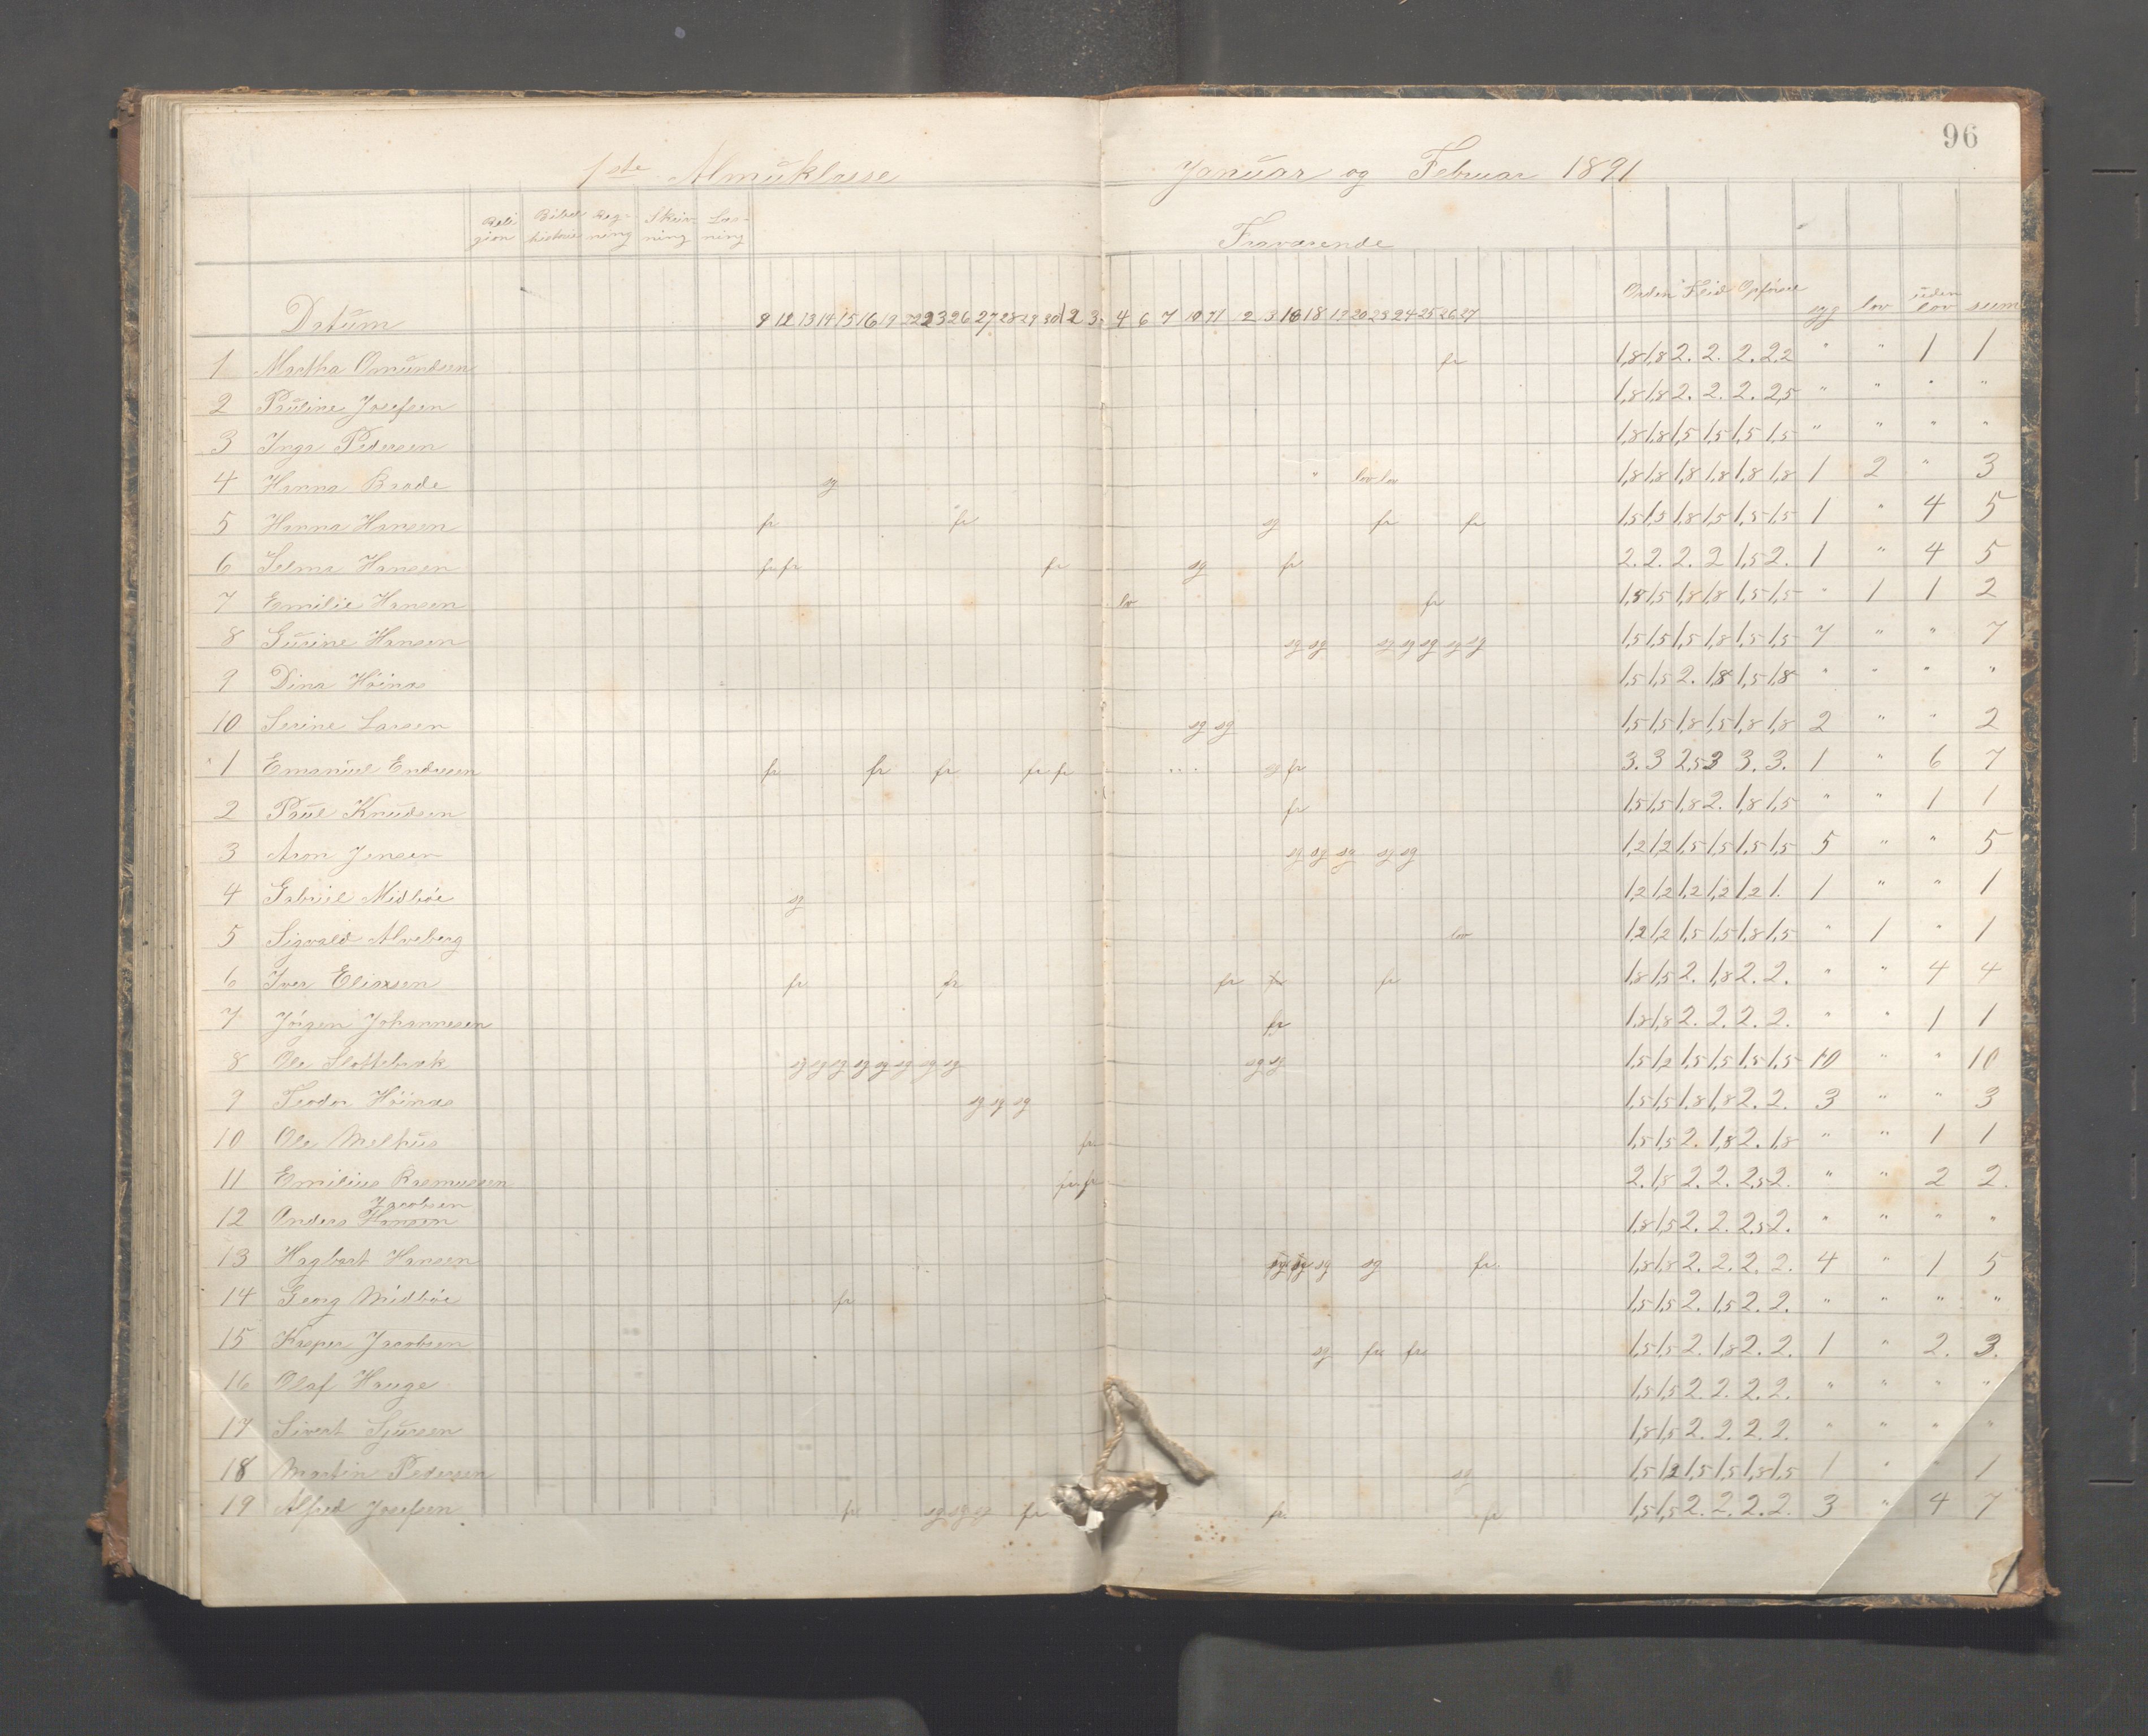 96
1ste Almuklasse Januar og Februar 1891
Reli gion Bibel historie Reg- ning Skriv- ning Læs- ning Fraværende
Datum 9 12 13 14 15 16 19 22 23 26 27 28 29 30 2 3 4 6 7 10 11 2 3 16 18 19 20 23 24 25 26 27 Orden Flid Opförsel syg lov uden lov sum
1 Martha Omundsen fr 1,8 1,8 2. 2. 2. 2,2 " " 1 1
2 Pauline Josefsen 1,8 1,8 2. 2. 2. 2,5 " " " "
3 Inga Pedersen 1,8 1,8 1,5 1,5 1,5 1,5 " " " "
4 Hanna Brade sg " lov lov 1,8 1,8 1,8 1,8 1,8 1,8 1 2 " 3
5 Hanna Hansen fr fr sg fr fr 1,5 1,5 1,8 1,5 1,5 1,5 1 " 4 5
6 Selma Hansen fr fr fr sg fr 2. 2. 2. 2 1,5 2. 1 " 4 5
7 Emilie Hansen lov fr 1,8 1,5 1,8 1,8 1,5 1,5 " 1 1 2
8 Gurine Hansen sg sg sg sg sg sg sg 1,5 1,5 1,5 1,8 1,5 1,5 7 " " 7
9 Dina Höinæs 1,5 1,5 2. 1,8 1,5 1,8 " " " "
10 Serine Larsen sg sg 1,5 1,5 1,8 1,5 1,8 1,8 2 " " 2
1 Emaniel Endresen fr fr fr fr fr sg fr 3. 3 2,5 3 3. 3. 1 " 6 7
2 Paul Knudsen fr 1,5 1,5 1,8 2. 1,8 1,5 " " 1 1
3 Aron Jensen sg sg sg sg sg 1,2 1,2 1,5 1,5 1,5 1,5 5 " " 5
4 Gabriel Midböe sg 1,2 1,2 1,2 1,2 1,2 1. 1 " " 1
5 Sigvald Alveberg lov 1,2 1,2 1,5 1,5 1,8 1,5 " 1 " 1
6 Iver Eliassen fr fr fr fr fr 1,8 1,5 2. 1,8 2. 2. " " 4 4
7 Jörgen Johannesen fr 1,8 1,8 2. 2. 2. 2. " " 1 1
8 Ole Slottebræk sg sg sg sg sg sg sg sg sg sg 1,5 1,2 1,5 1,5 1,5 1,5 10 " " 10
9 Teodor Höinæs sg sg sg 1,5 1,5 1,8 1,8 2. 2. 3 " " 3
10 Ole Melhus fr 1,5 1,5 2. 1,8 2. 1,8 " " 1 1
11 Emilius Rasmussen fr fr 2. 1,8 2. 2. 2,5 2. " " 2 2.
Jacobsen
12 Anders Hansen 1,8 1,5 2. 2. 2,5 2. " " " "
13 Hagbart Hansen sg sg sg sg fr. 1,8 1,8 2. 2. 2. 2. 4 " 1 5
14 Georg Midböe fr 1,5 1,5 2. 1,5 2. 2. " " " "
15 Kasper Jacobsen sg fr fr 1,5 1,5 2. 1,8 2. 2. 1 " 2. 3.
16 Olaf Hauge 1,5 1,5 2. 2. 2. 2. " " " "
17 Sivert Sjursen 1,8 1,5 2. 2. 2. 2. " " " "
18 Martin Pedersen sg 1,5 1,2 1,5 1,5 1,8 1,5 1 " " 1
19 Alfred Josefsen fr sg sg sg fr fr. fr 1,5 1,5 2. 2. 2. 2. 3 " 4 7